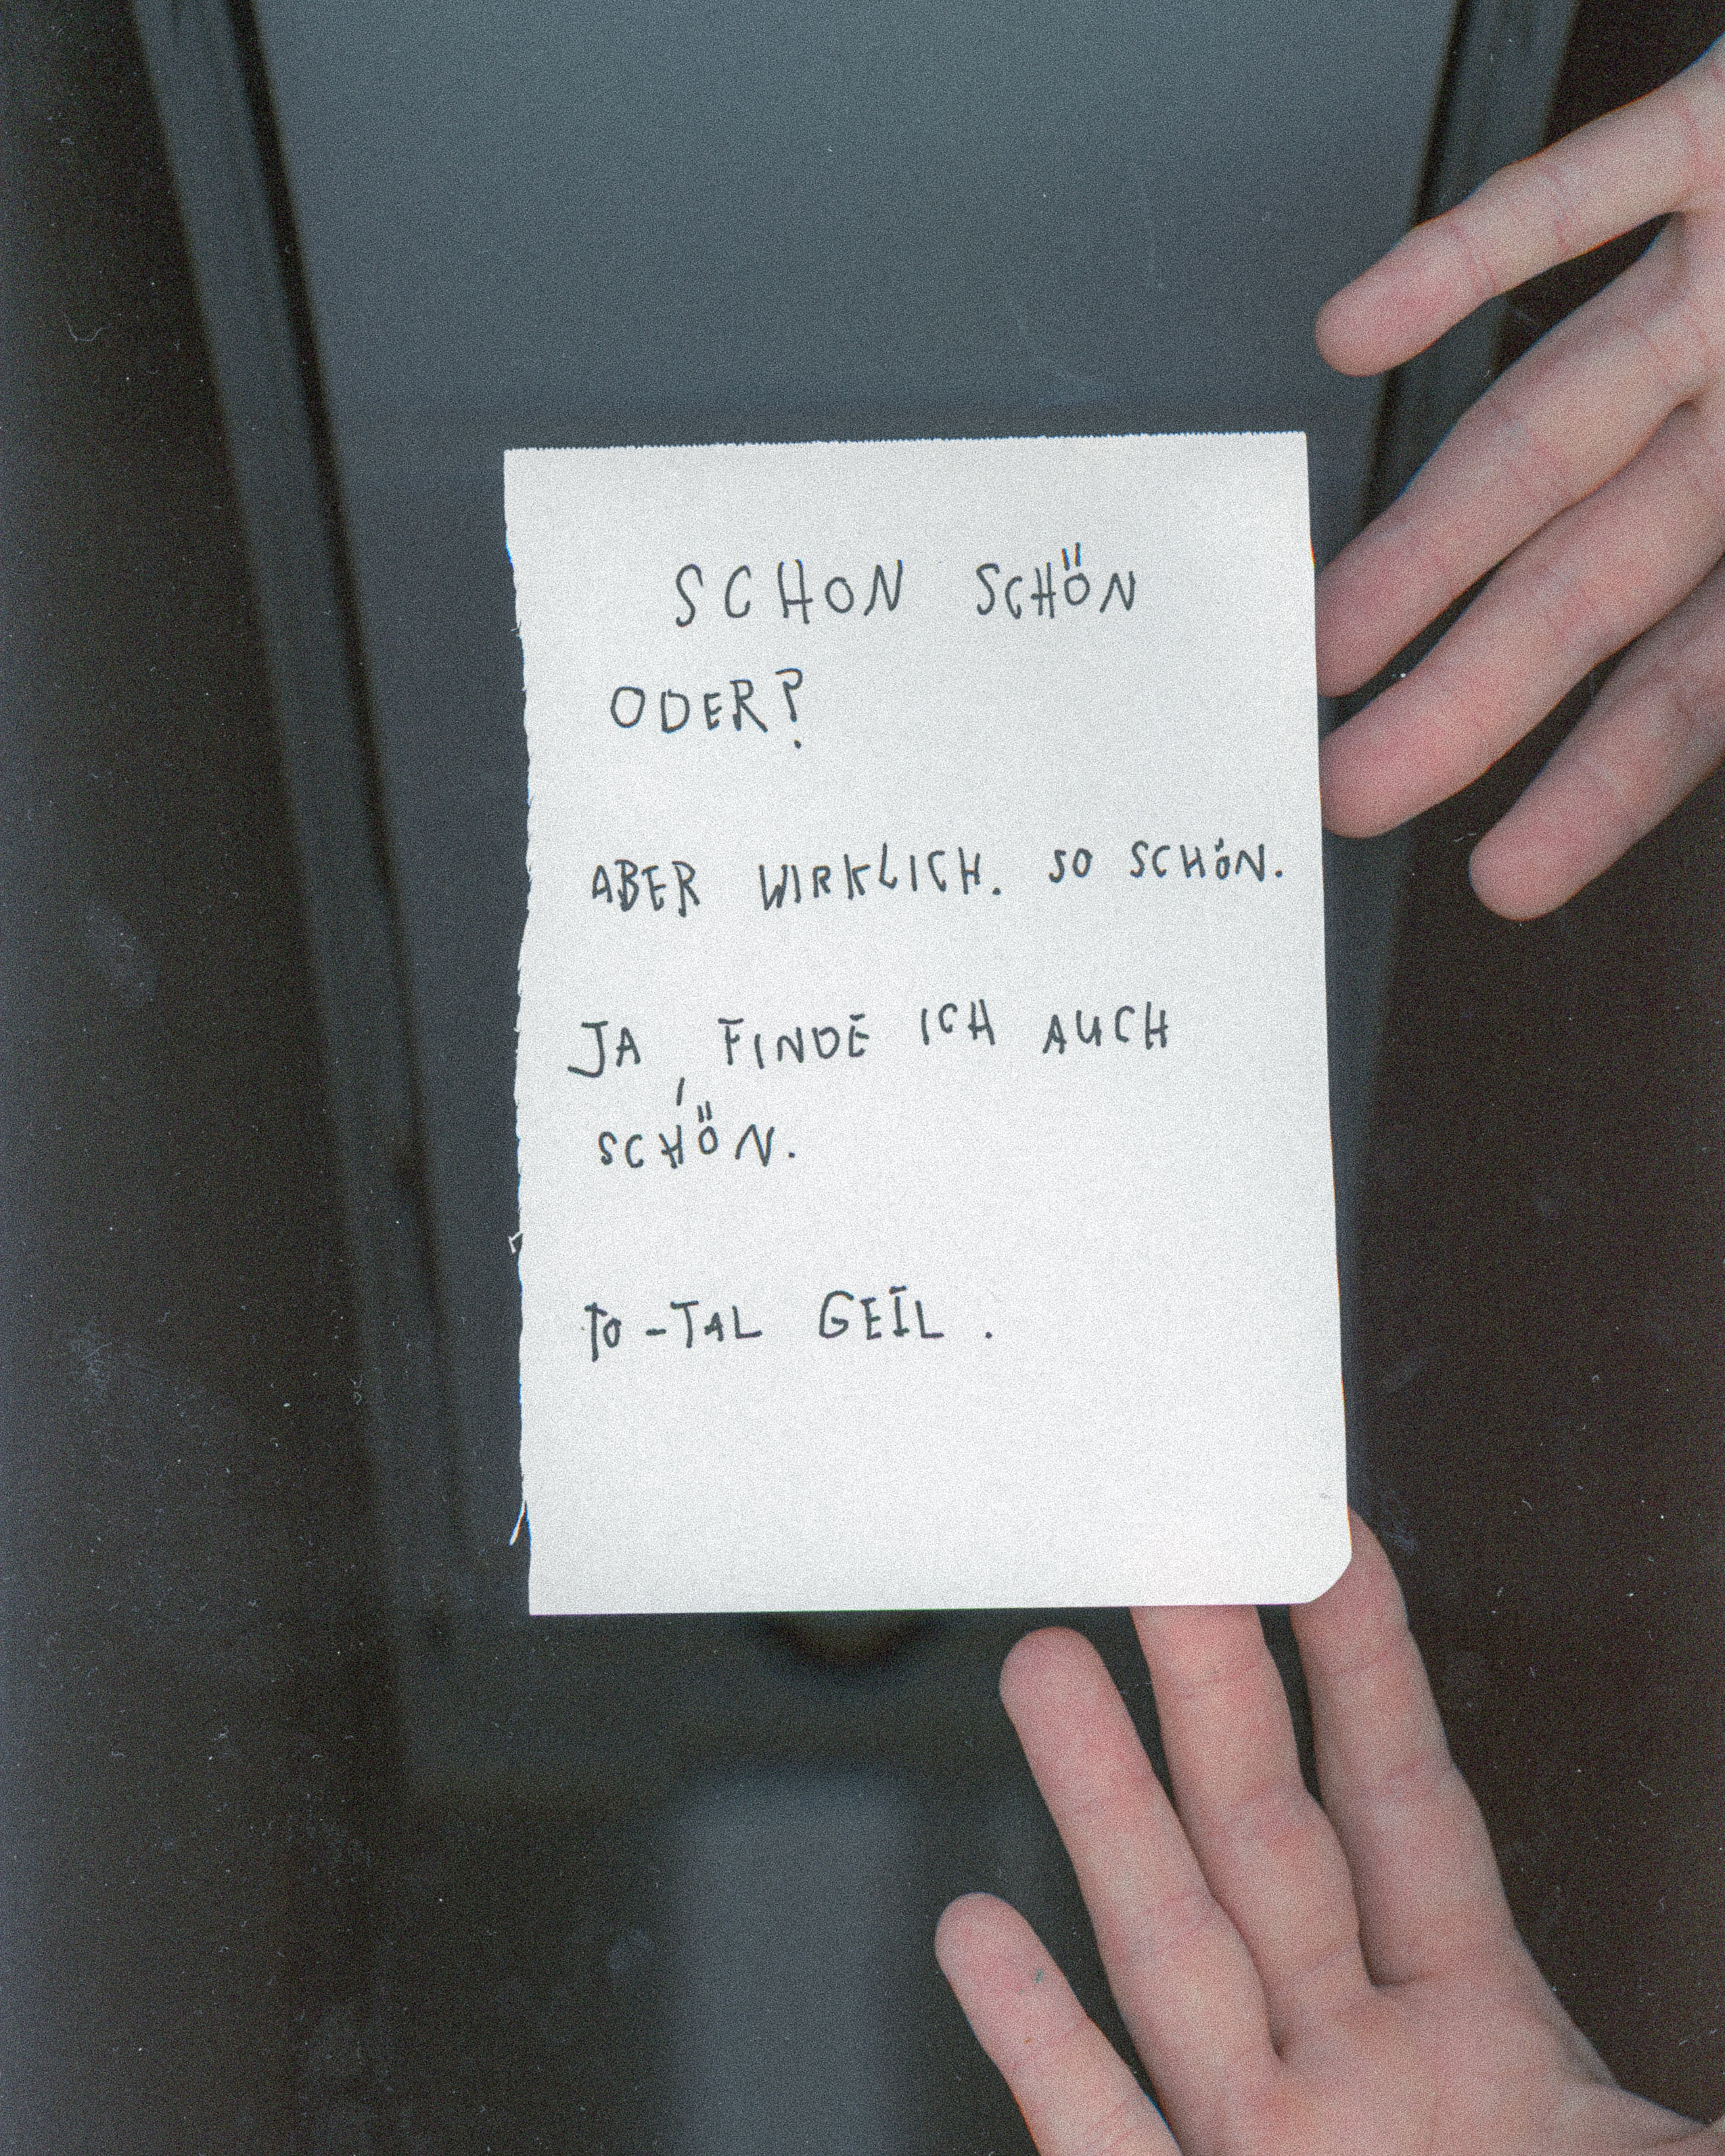 SCHON SCHÖN
ODER?
ABER WIRKLICH. SO SCHÖN.
JA, FINDE ICH AUCH
SCHÖN.
TO-TAL GEIL.